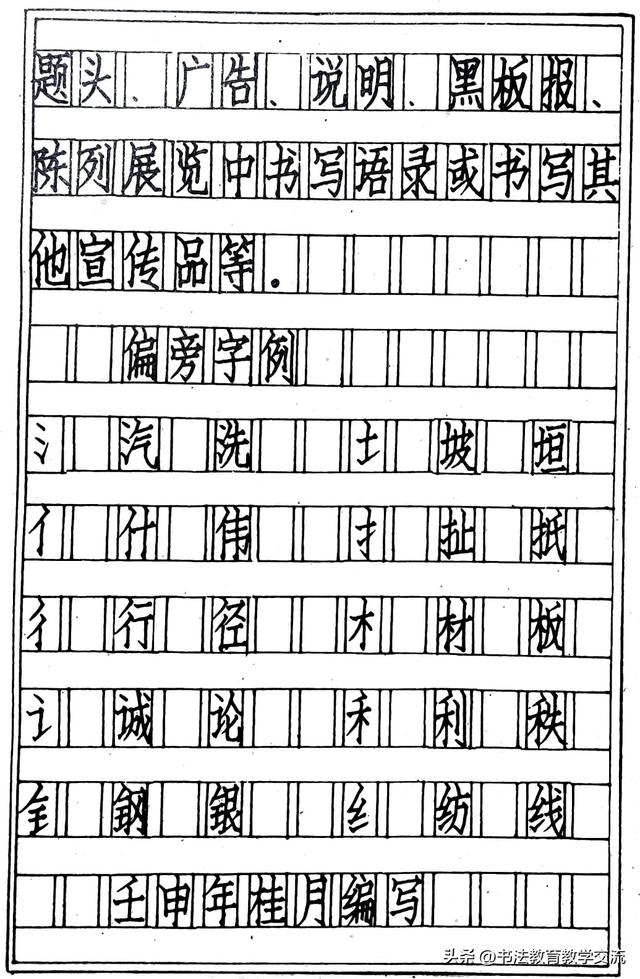 题头、广告、说明、黑板报、
陈列展览中书写语录或书写其
他宣传品等。
偏旁字例
氵 汽 洗 土 坡 垣
亻 什 伟 扌 扯 抵
彳 行 径 木 材 板
讠 诚 论 禾 利 秩
钅 钢 银 纟 纺 线
壬申年桂月编写
头条@书法教育教学交流